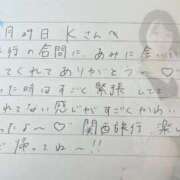 月29日 Kさんへ
行の合間に、あみに会い
てくれてありがとう〜♡
た時はすごく緊張して
れてない感じがすごくかわい
たよ〜♡ 関西旅行、楽し
帰ってね〜!!